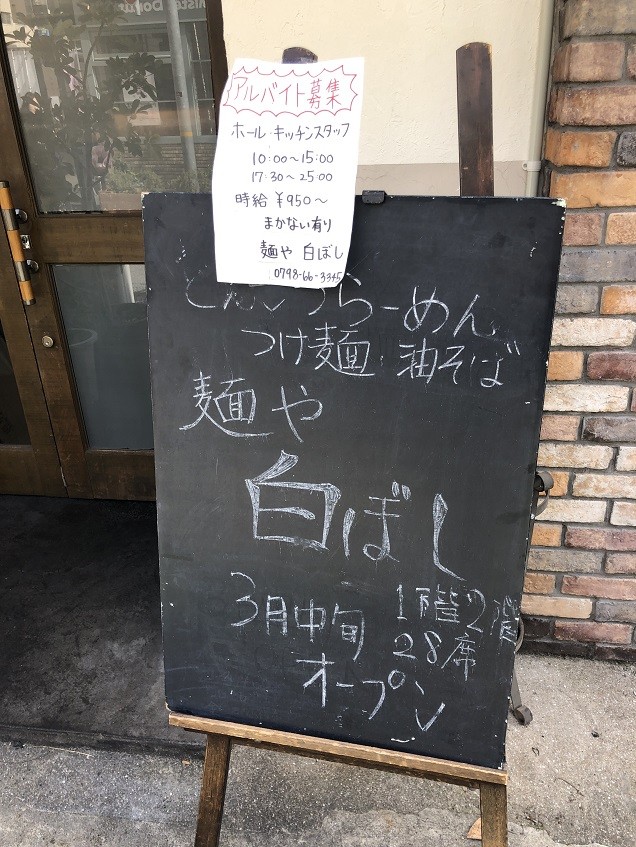 アルバイト募集
ホール・キッチンスタッフ
10:00～15:00
17:30～25:00
時給 ¥950～
まかない有り
麺や 白ぼし
0798-66-3345
とんこつらーめん
つけ麺 油そば
麺や
白ぼし
3月中旬
オープン
1階2階
28席